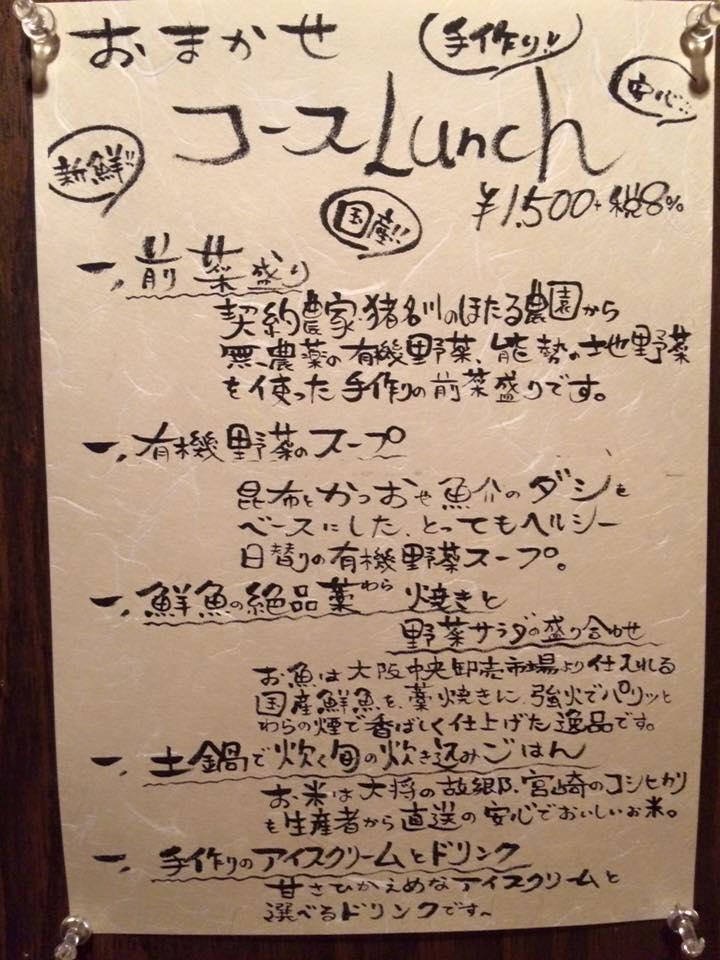 おまかせ
手作り!!
安心!!
コースLunch
新鮮!!
国産!!
¥1,500+税8%
一、前菜盛り
契約農家・猪名川のほたる農園から
無農薬の有機野菜、能勢の地野菜
を使った手作りの前菜盛りです。
一、有機野菜のスープ
昆布とかつおや魚介のダシを
ベースにした、とってもヘルシー
日替りの有機野菜スープ。
一、鮮魚の絶品藁わら焼きと
野菜サラダの盛り合わせ
お魚は大阪中央卸売市場より仕入れる
国産鮮魚を、藁焼きに、強火でパリッと
わらの煙で香ばしく仕上げた逸品です。
一、土鍋で炊く旬の炊き込みごはん
お米は大将の故郷、宮崎のコシヒカリ
を生産者から直送の安心でおいしいお米。
一、手作りのアイスクリームとドリンク
甘さひかえめなアイスクリームと
選べるドリンクです〜